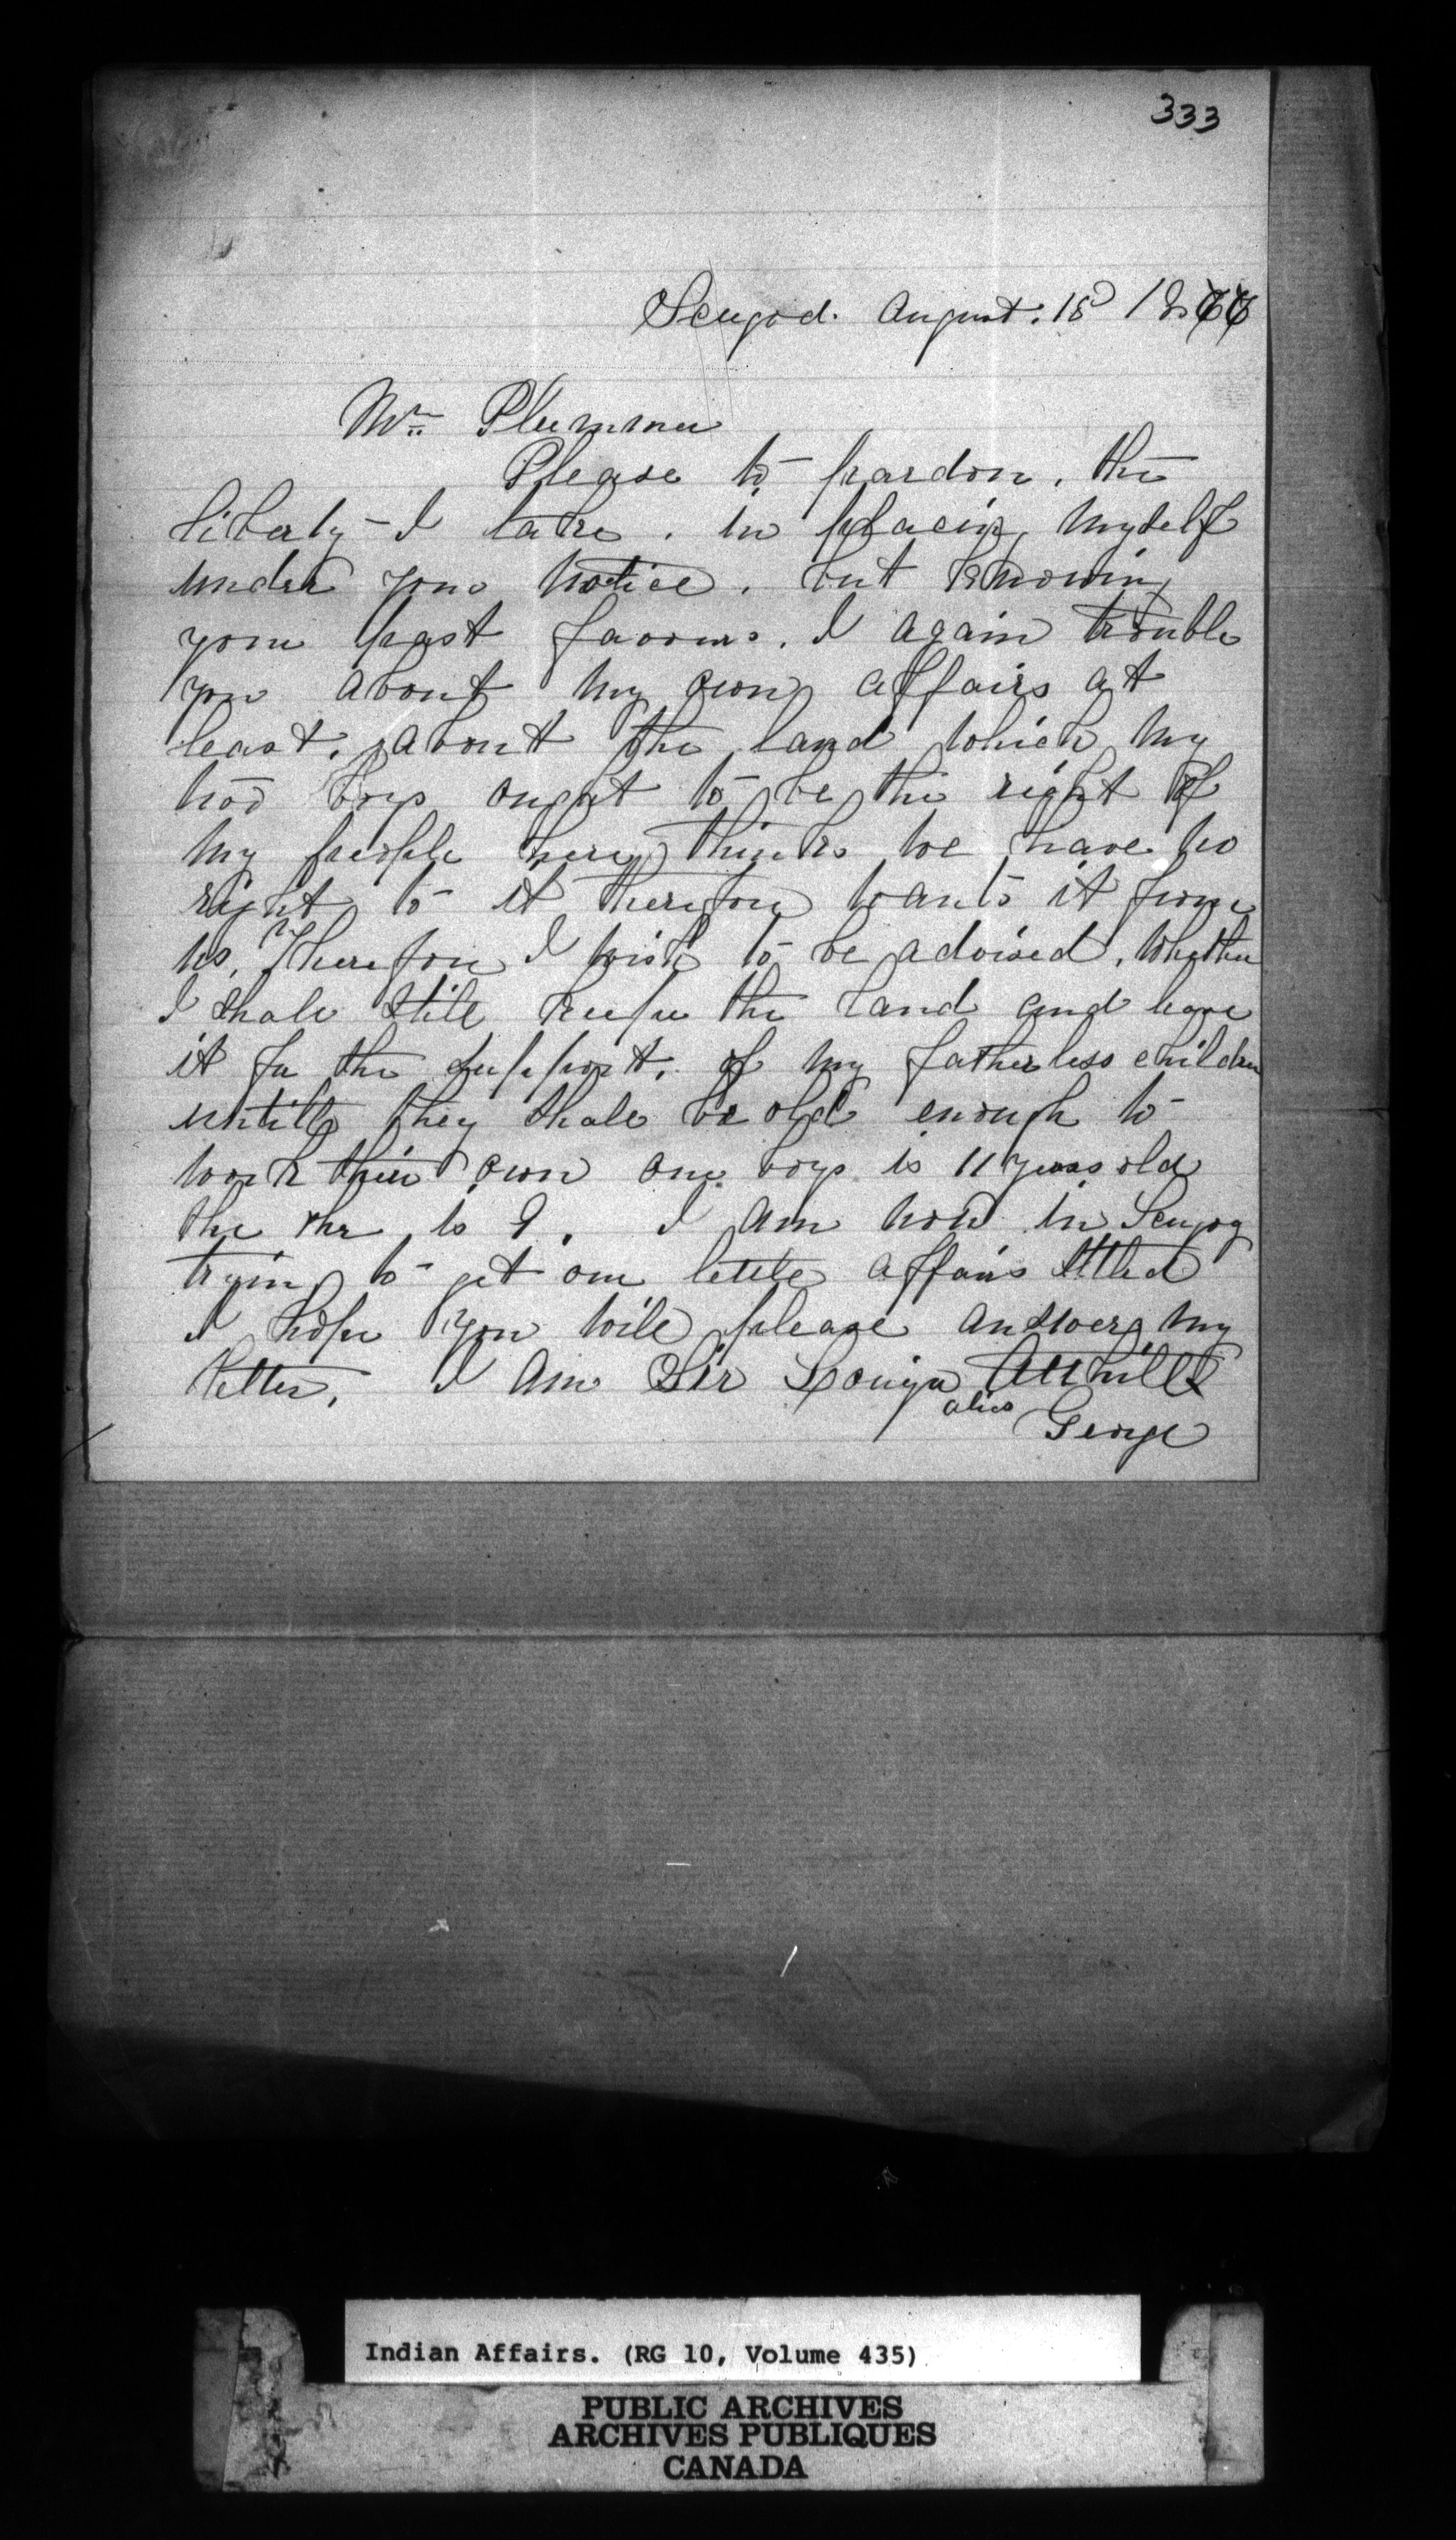 333
Scugod. August. 18 1876
Mr. Plummer
Please to pardon, the
liberty - I take. in placing myself
under your notice. but knowing
your past favours. I again trouble
you about my own affairs at
least. about the land which my
two boys ought to be the right of
my people here thinks we have no
right to it therefore wants it from
us. Therefore I wish to be advised. whether
I shale stile keepe the land and leave
it for the support. of my fatherless children
untill they shale be old enough to
work their own one boys is 11 years old
the other is 9. I am now in Scugog
trying to get our little affairs settled
I hope you wile please answer my
letter. I am Sir Louiza
alias George
Indian Affairs. (RG 10, Volume 435)
PUBLIC ARCHIVES
ARCHIVES PUBLIQUES
CANADA